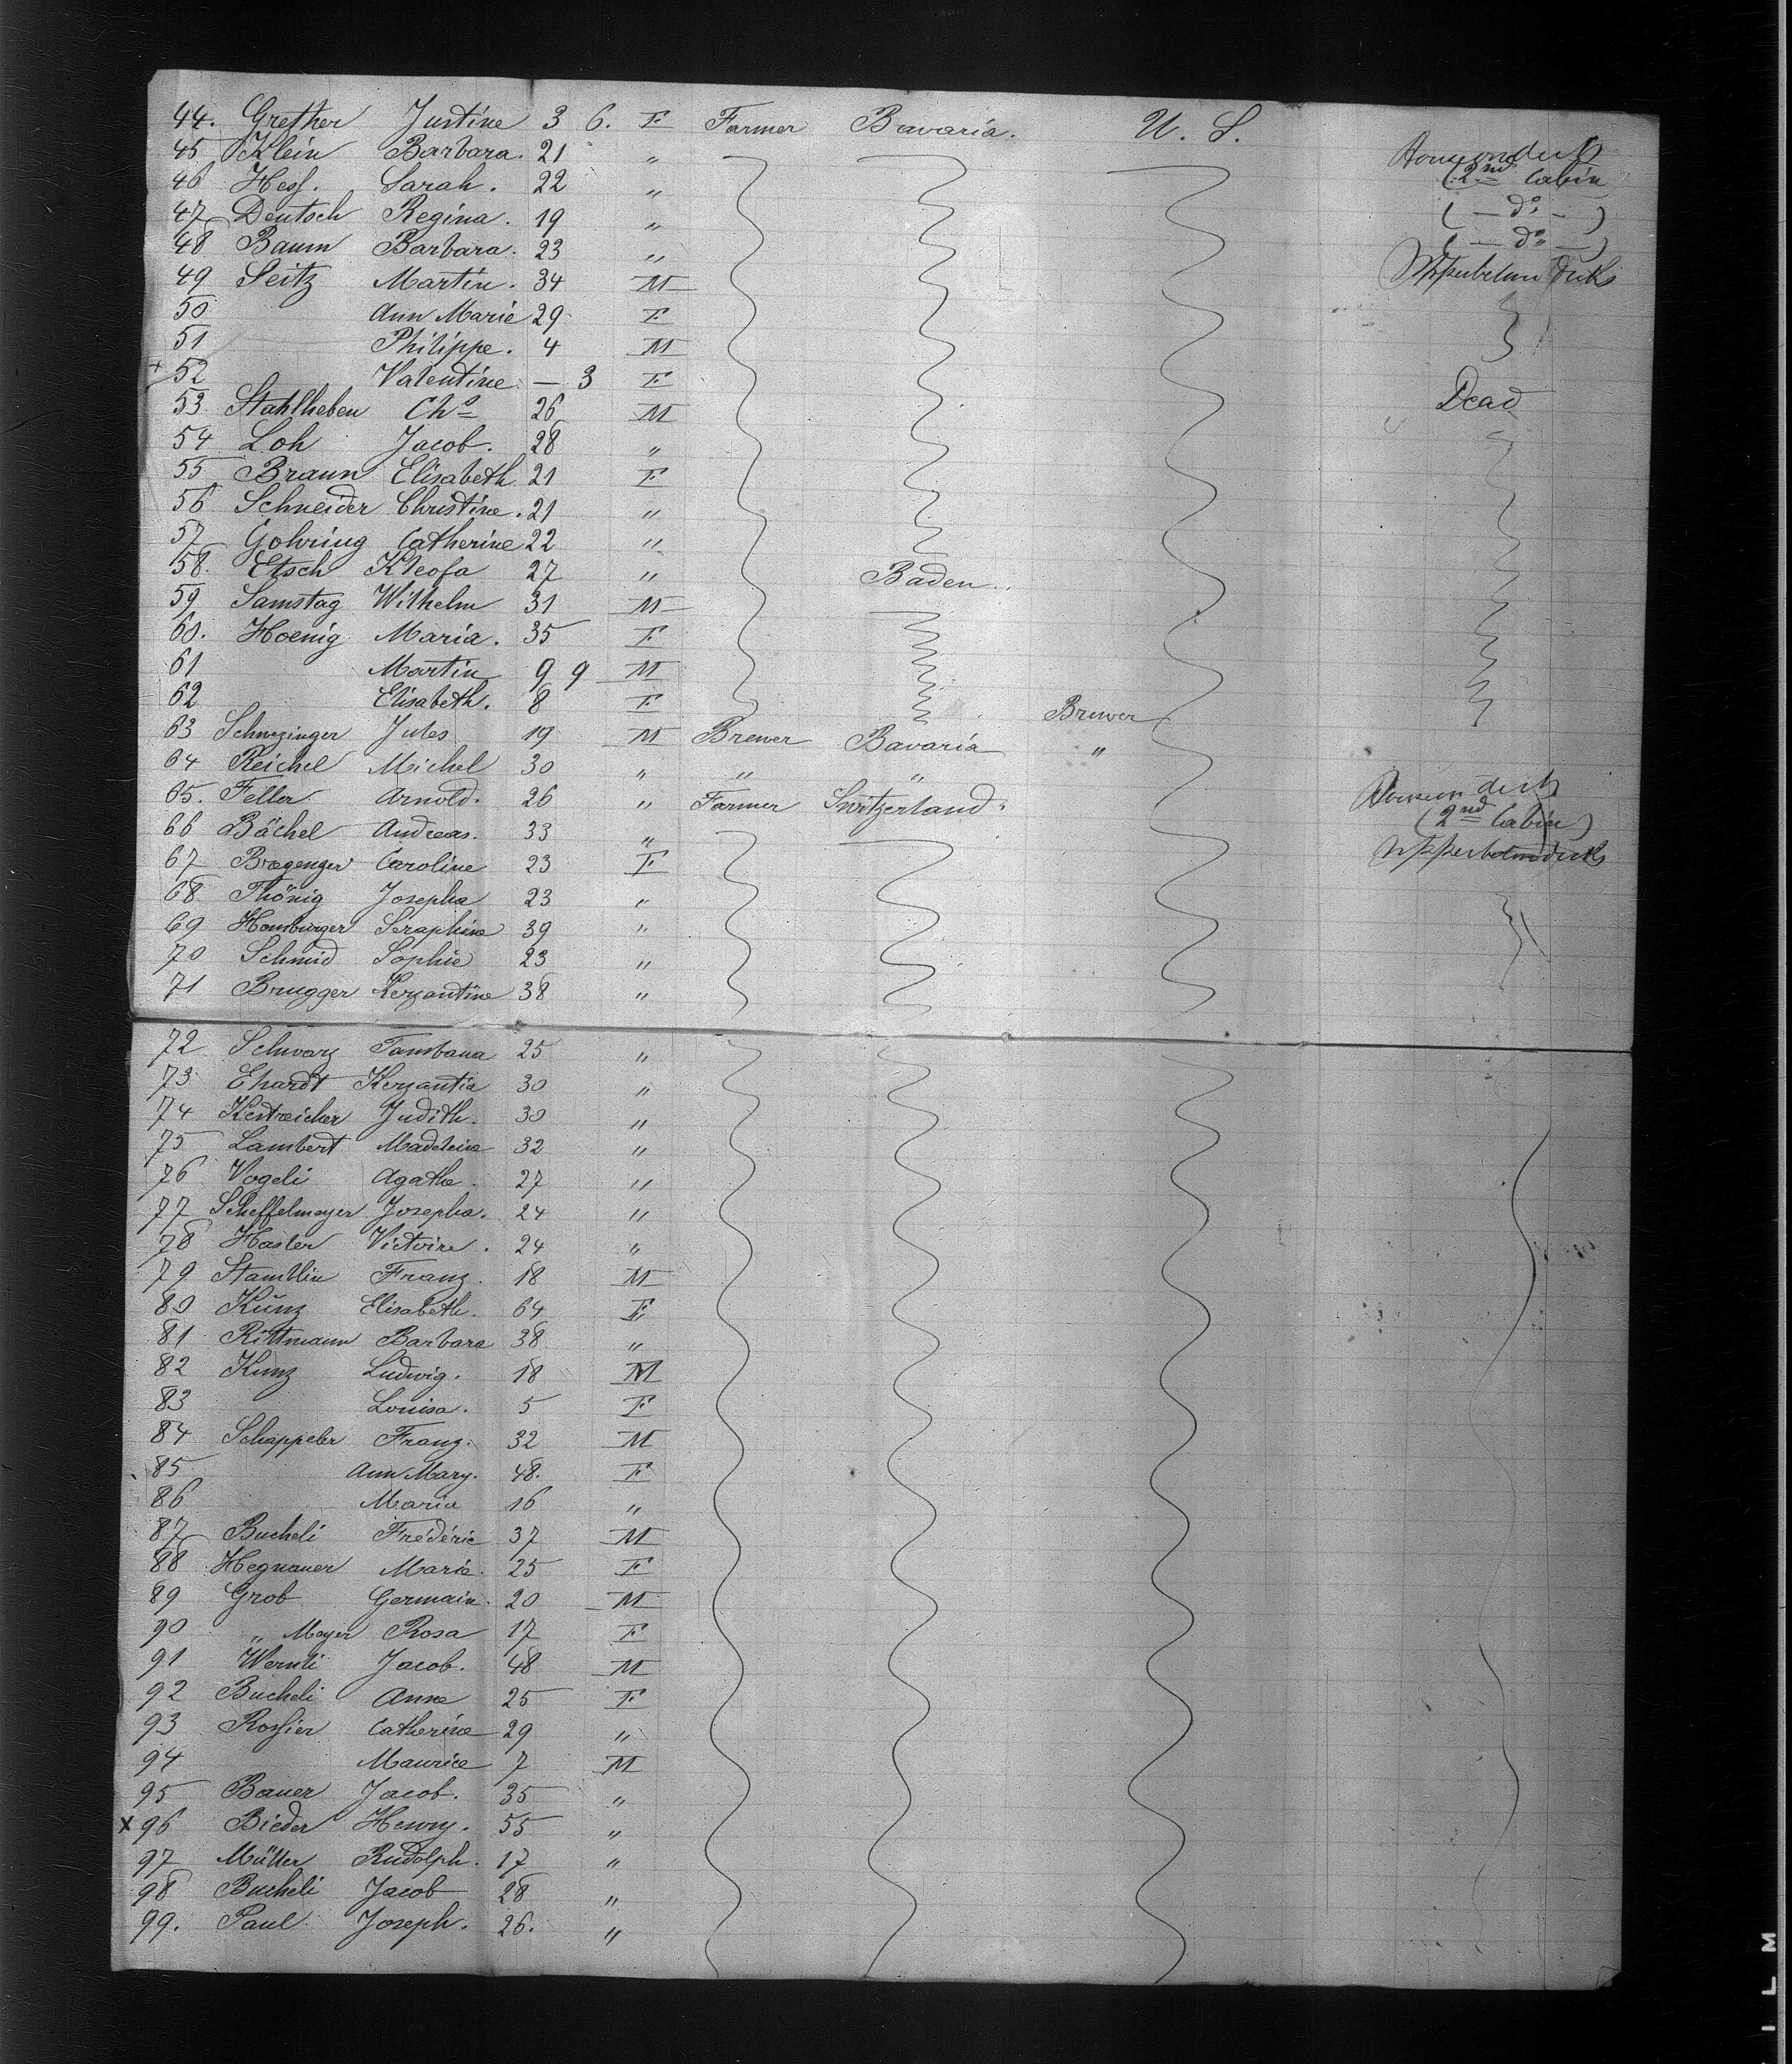 44. Grether Justine 3 6. F Farmer Bavaria. U. S.
45 Klein Barbara. 21 "
46 Hess. Sarah. 22 " (2nd Cabin
47 Deutsch Regina. 19 " ( — do — )
48 Baum Barbara. 23 " ( — do — )
49 Seitz Martin. 34 M
50 Ann Marie 29 F
51 Philippe. 4 M
+ 52 Valentine — 3 F Dead
53 Stahlheben Cho 26 M
54 Loh Jacob. 28 "
55 Braun Elisabeth. 21 F
56 Schneider Christine. 21 "
57 Gohring Catherine 22 "
58. Etsch Kleofa 27 " Baden
59 Samstag Wilhelm 31 M
60. Hoenig Maria. 35 F
61 Martin 9 9 M
62 Elisabeth. 8 F Brewer
63 Schwezinger Jules 19 M Brewer Bavaria "
64 Reichel Michel 30 " " "
65. Feller Arnold. 26 " Farmer Switzerland
66 Bächel Andreas. 33 " (2nd Cabin)
67 Bregenger Caroline 23 F
68 Thönig Josepha 23 "
69 Homburger Seraphine 39 "
70 Schmid Sophie 23 "
71 Brugger 38 "
72 Schwarz 25 "
73 Ehardt 30 "
74 Judith. 30 "
75 Lambert Madeleine 32 "
76 Vogeli Agathe. 27 "
77 Scheffelmeyer Josepha. 24 "
78 Hasler Victoire. 24 "
79 Franz. 18 M
80 Kunz Elisabeth. 64 F
81 Rittmann Barbara 38 "
82 Kunz Ludwig. 18 M
83 Louisa. 5 F
84 Schappeler Franz. 32 M
85 Ann Mary. 48. F
86 Maria 16 "
87 Bucheli Frédéric 37 M
88 Hegnauer Marie. 25 F
89 Grob Germain. 20 M
90 " Meyer Rosa 17 F
91 Wernli Jacob. 48 M
92 Bucheli Anne 25 F
93 Rossier Catherine 29 "
94 Maurice 7 M
95 Bauer Jacob. 35 "
x 96 Bieder Henry. 55 "
97 Müller Rudolph. 17 "
98 Bucheli Jacob 28 "
99. Paul Joseph. 26. "
I L M